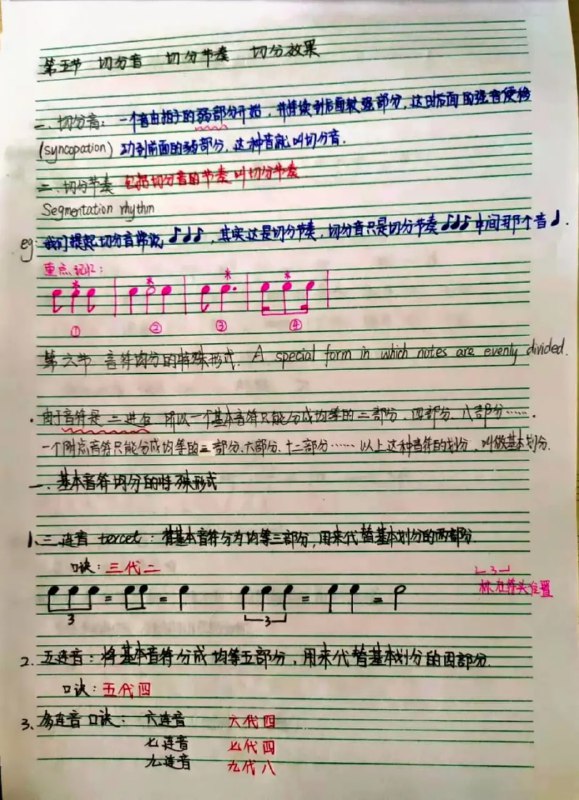 第五节 切分音 切分节奏 切分效果
一、切分音：一个音由拍子的弱部分开始，并持续到后面较强部分，这时后面的强音便移
(syncopation) 到前面的弱部分，这种音就叫切分音.
二、切分节奏 包括切分音的节奏叫切分节奏
Segmentation rhythm
eg: 我们提起切分音常说♪♩♪，其实这是切分节奏，切分音只是切分节奏♪♩♪中间那个音♩.
重点记忆：
① ② ③ ④
第六节 音符均分的特殊形式. A special form in which notes are evenly divided.
由于音符是二进制 所以一个基本音符只能分成均等的二部分，四部分，八部分……
一个附点音符只能分成均等的三部分、六部分、十二部分…… 以上这种音符的划分，叫做基本划分.
一、基本音符均分的特殊形式
1、三连音 tercet：将基本音符分为均等三部分，用来代替基本划分的两部分
口诀：三代二
3 = = 3 = =
⌞3⌟
标在符头位置
2、五连音：将基本音符分成均等五部分，用来代替基本划分的四部分.
口诀：五代四
3、多连音 口诀： 六连音 六代四
七连音 七代四
九连音 九代八